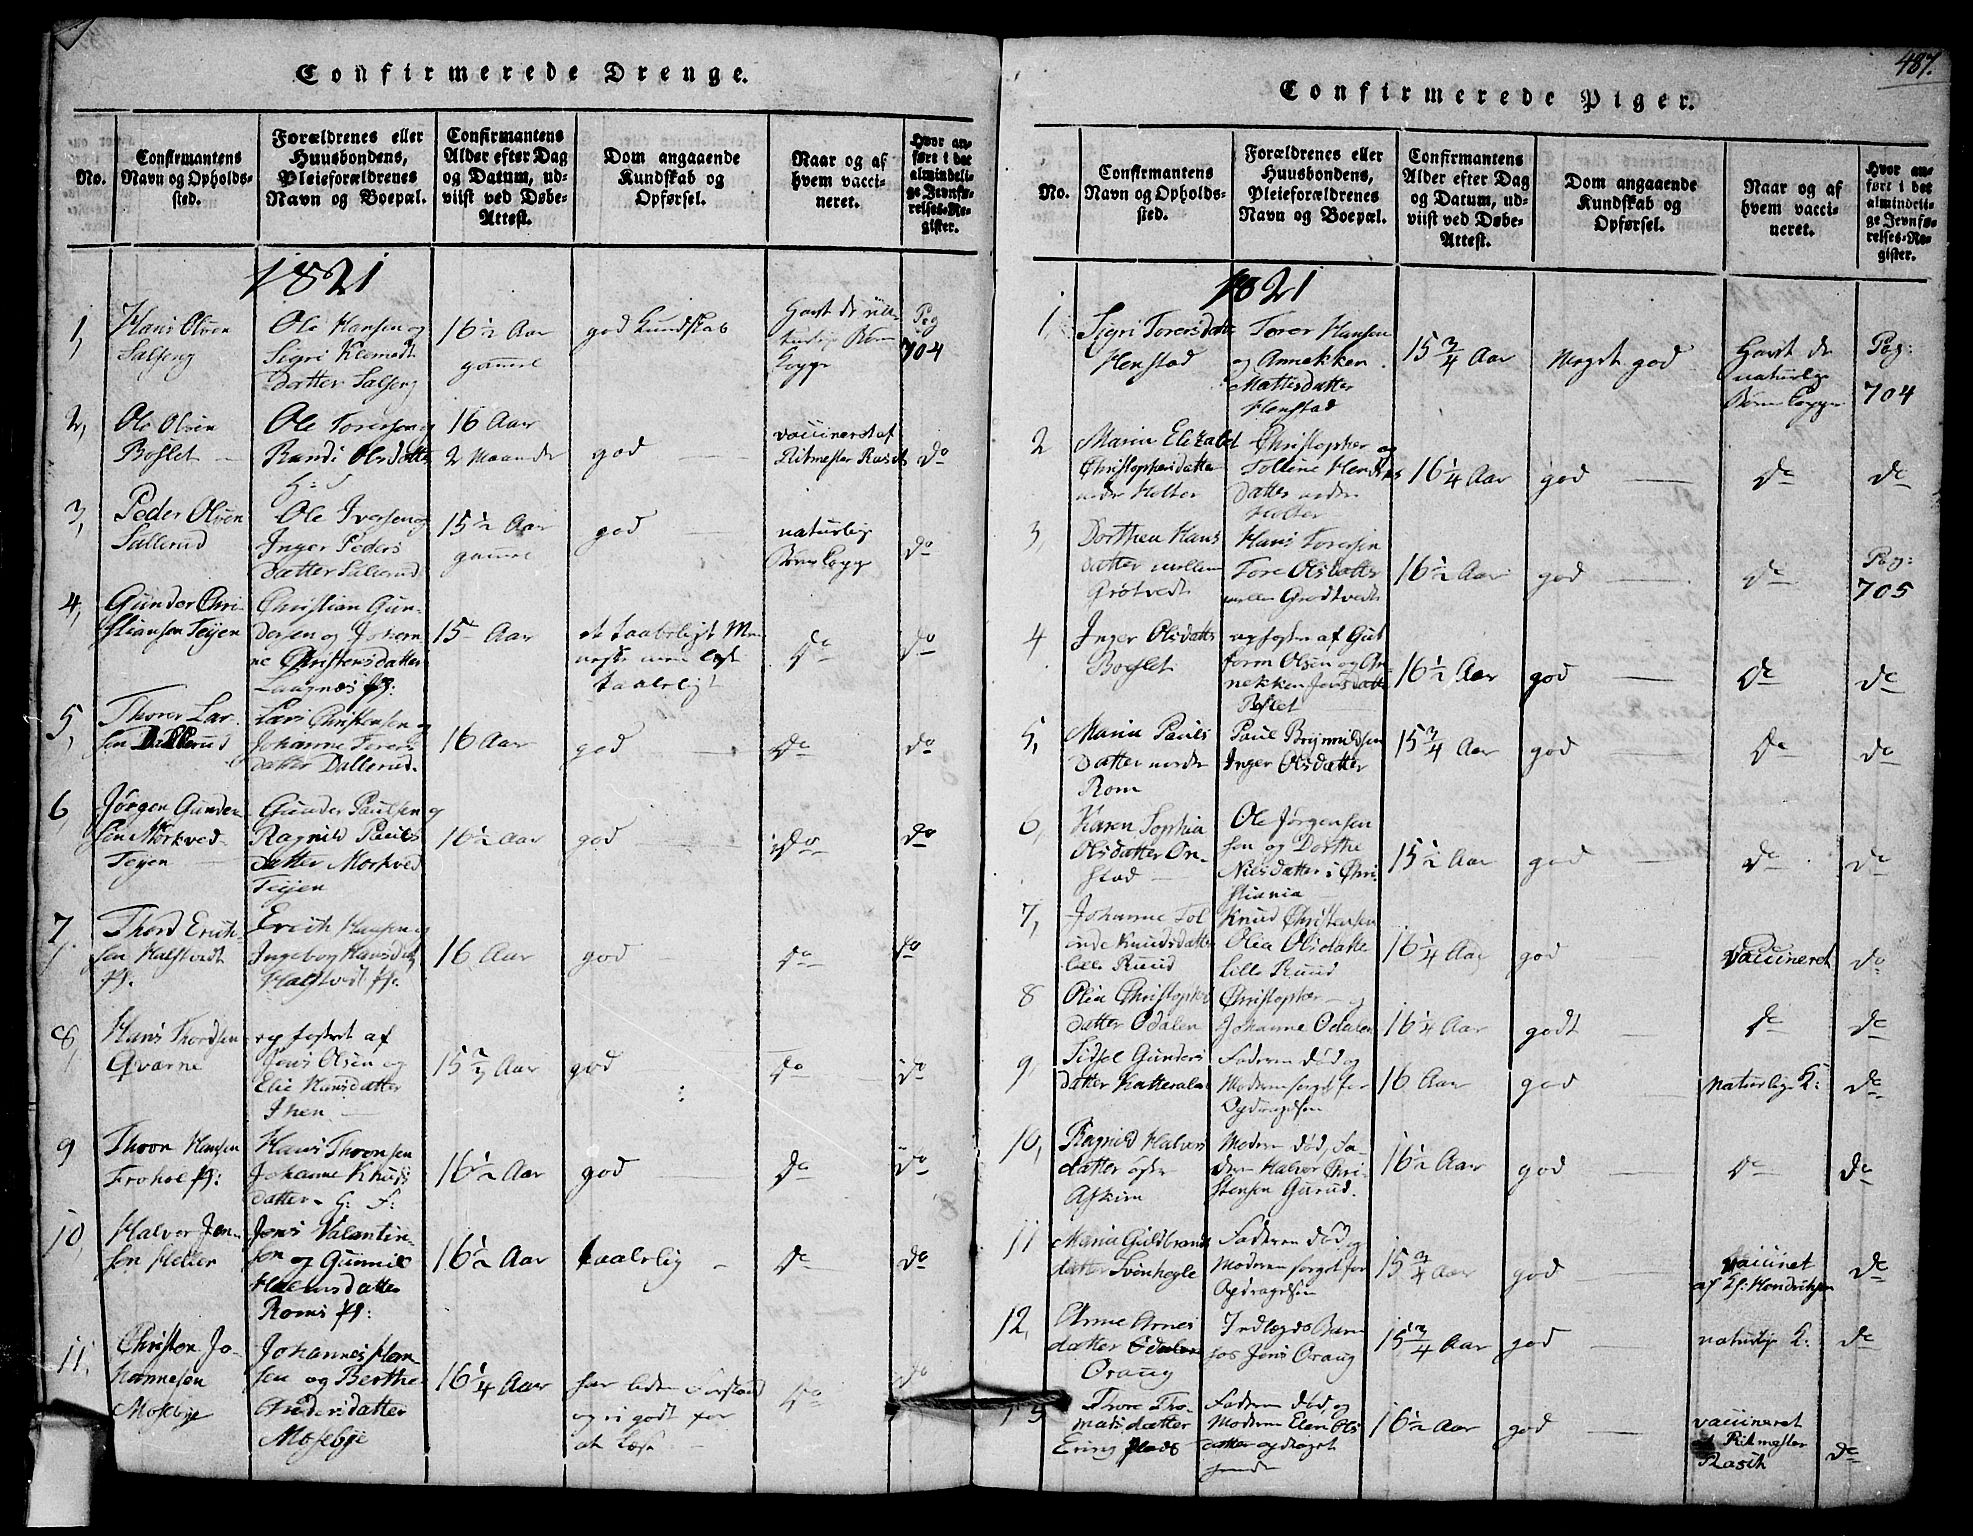 Confirmerede Drenge.
No.
Confirmantens
Navn og Opholds-
sted.
Forældrenes eller
Huusbondens,
Pleieforældrenes
Navn og Boepæl.
Confirmantens
Alder efter Dag
og Datum, ud-
viist ved Døbe-
Attest.
Dom angaaende
Kundskab og
Opførsel.
Naar og af
hvem vacci-
neret.
Hvor an-
ført i det
almindeli-
ge Jevnfø-
relses-Re-
gister.
1821
1,
Hans Olsen
Ole Hansen og
Sigri Klemedt
Datter
16 1/2 Aar
gammel
god Kundskab
Pag
704
2,
Ole Olsen
Bøslet
Ole Toresen og
Randi Olsdatter
16 Aar
2 Maaneder
god
vaccineret af
Ritmester
do
3,
Peder Olsen
Sallerud
Ole Iversen og
Inger Peders
Datter Sallerud
15 1/2 Aar
gammel
god
naturlig
do
4,
Gunder Chri-
stiansen Teijen
Christian Gun-
dersen og
Christensdatter
15 Aar
taaleligt
do
do
5,
Thorer Lar-
sen Dallerud
Lars Christensen og
Johanne Torers
datter Dallerud.
16 Aar
god
do
do
6,
Jørgen Gunder
sen Morkved
Teijen
Gunder Paulsen og
Ragnild Pauls
datter Morkved
Teijen
16 1/2 Aar
god
do
do
7,
Thord Erich-
sen Halstvedt
Erich Hansen og
Ingebor Hansdatter
Halstvedt
16 Aar
god
do
do
8,
Hans Thordsen
Qvarne
opfostret af
Jens Olsen og
Elie Hansdatter
Ihlen
15 Aar
god
do
do
9
Thron Hansen
Frohol
Hans Thronsen
Johanne Knuds
datter
16 1/2 Aar
god
do
do
10,
Halvor Jen-
sen
Jens Valentin-
sen og Gunnil
datter
Roms
16 1/2 Aar
taalelig
do
do
11,
Christen Jo-
hannesen
Mosebye
Johannes Han-
sen og Berthe
Andersdatter
Mosebye
16 1/4 Aar
har liden Forstand
og ei godt for
at Læse
do
do
487.
Confirmerede Piger.
No.
Confirmantens
Navn og Opholds-
sted.
Forældrenes eller
Huusbondens,
Pleieforældrenes
Navn og Boepæl.
Confirmantens
Alder efter Dag
og Datum, ud-
viist ved Døbe-
Attest.
Dom angaaende
Kundskab og
Opførsel.
Naar og af
hvem vacci-
neret.
Hvor an-
ført i det
almindeli-
ge Jevnfø-
relses-Re-
gister.
1821
1,
Sigri Torersdatter
Henstad
Torer Hansen
og Annekken
Mattisdatter
Henstad
15 3/4 Aar
Meget god
Havt de
naturlige
Børne Kopper
Pag:
704
2
Maria Elizabet
Christophersdatter
Christopher og
datter
16 1/4 Aar
god
do
do
3,
Dorthea Hans
datter mellem
Grøtvedt
Hans Toresen
Tore Olsdatter
mellem Grødtvedt
16 1/2 Aar
god
do
Pag:
705
4
Inger Olsdatter
Bøslet
opfostret af Gut
torm Olsen og An
nekken Jensdatter
Bøslet
16 1/2 Aar
god
do
do
5,
Maria Pauls
datter nordre
Rom
Paul Brynnildsen
Inger Olsdatter
15 3/4 Aar
god
do
do
6,
Karen Sophia
Olsdatter On-
stad
Ole Jørgensen
sen og Dorthe
Nielsdatter i Chri-
stiania
15 1/2 Aar
god
do
do
7,
Johanne Tol
inde Knudsdatter
lille Ruud
Knud Christensen
Olia Olsdatter
lille Ruud
16 1/4 Aar
god
vaccineret
do
8
Olia Christopher
datter Odalen
Christopher og
Johanne Odalen
16 1/4 Aar
godt
do
do
9,
Sidsel Gunders
datter
Faderen død og
Moderen sørget for
Opdragelsen
16 Aar
god
naturlige K:
do
10,
Ragnild Halvors
datter østre
Askim
Moderen død, Fa-
deren Halvor Chri-
stensen Gurud.
16 1/2 Aar
god
do
do
11
Maria Guldbrands
datter Svenhogle
Faderen død og
Moderen sørget for
Opdragelsen
15 3/4 Aar
god
vaccinet
af Kl: Hendriksen
do
12,
Anne Arnes
datter Odalen
Oraug
Indlagds Barn
hos Jens Oraug
15 3/4 Aar
god
naturlige K:
do
Thore Tho-
masdatter
Faderen død, og
Moderen Elen Ols
datter opdraget
hende
16 1/2 Aar
god
vaccineret
af Ritmester
Rasch
do